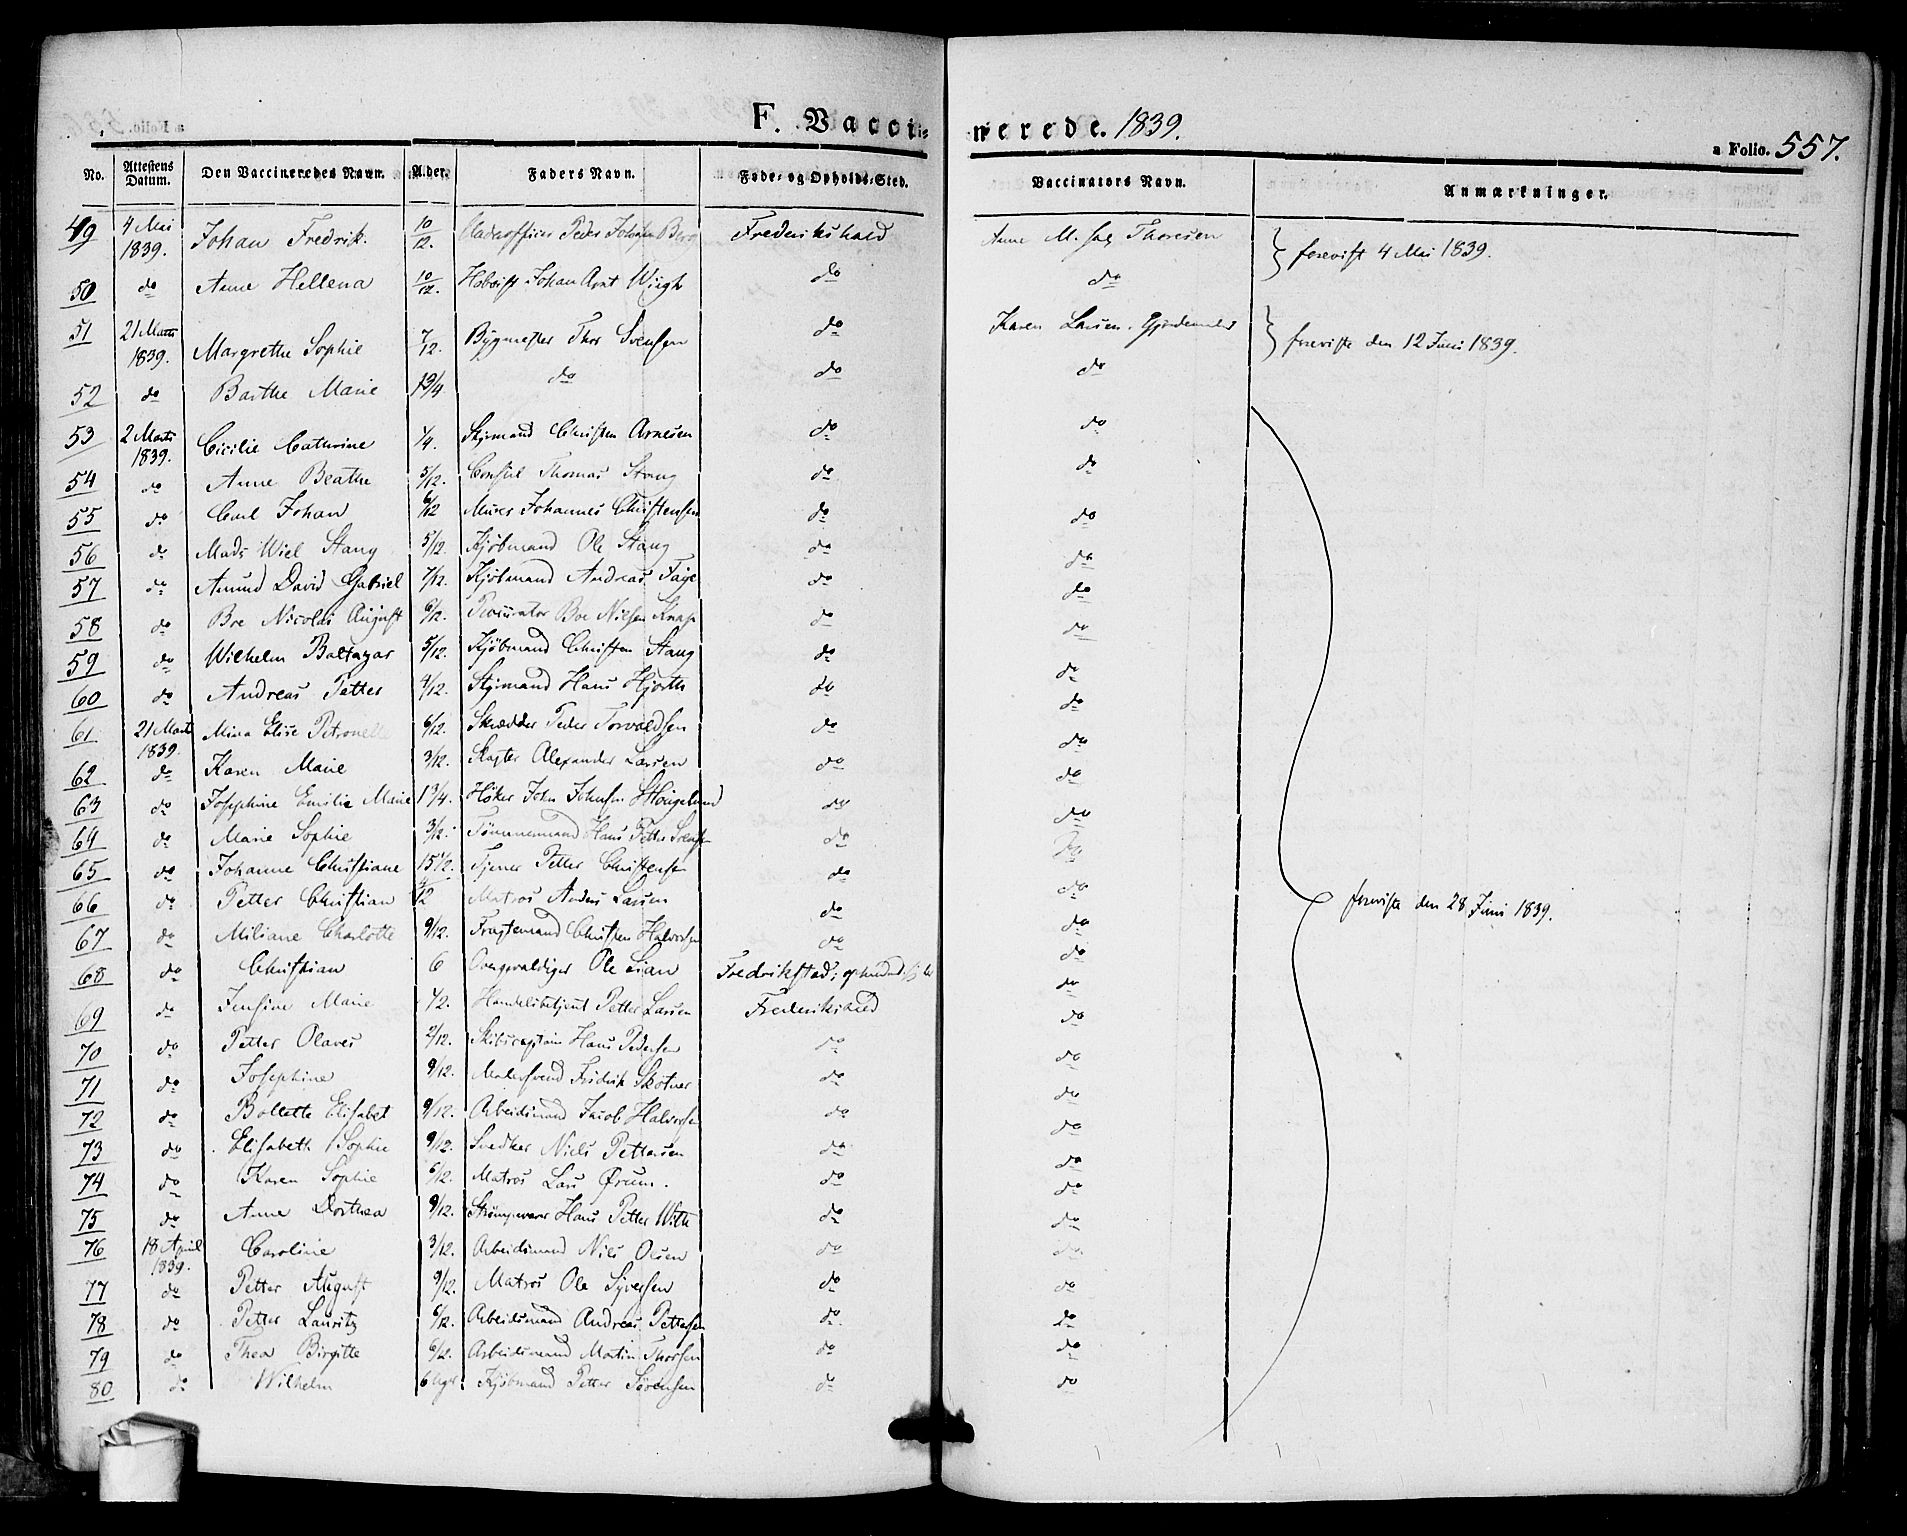 F. Vaccinerede. 1839.
a Folio. 557.
No. Attestens Datum. Den Vaccineredes Navn. Alder. Faders Navn. Føde- og Opholds-Sted. Vaccinators Navn. Anmærkninger.
49 4 Mai 1839. Johan Fredrik. 10/12. Peder Johan Frederikshald Anne M. Thoresen
forevist 4 Mai 1839.
50 do Anne Hellena 10/12. Johan Arnt Wiigh do do
51 21 Marts 1839. Margrethe Sophie 7/12. Bygmester Thor Svensen do Karen Larsen
foreviste den 12 Juni 1839.
52 do Barthe Marie do do do
53 2 Marts 1839. Cicilie Cathrine 1/4. Styrmand Christen Arnesen do do
54 do Anne Beathe 5/12. Consul Thomas Stang do do
55 do Carl Johan 6/12 Murer Johannes Christensen do do
56 do Mads Wiel Stang 5/12. Kjøbmand Ole Stang do do
57 do Amund David Gabriel 7/12. Kjøbmand Andreas do do
58 do Boe Nicolai August 6/12. Procurator Boe Nielsen Knap do do
59 do Wilhelm Baltazar 5/12. Kjøbmand Christen Stang do do
60 do Andreas Petter 4/12. Styrmand Hans Hjorth do do
61 21 Marts 1839. Mina Elise Petronelle 6/12. Skrædder Peder Torvaldsen do do
62 do Karen Marie 3/12. Slagter Alexander Larsen do do
63 do Josephine Emilie Marie 1 3/4. Høker John Johnsen do do
64 do Marie Sophie 3/12. Tømmermand Hans Petter Svensen do do
65 do Johanne Christiane Tjener Petter Christensen do do
66 do Petter Christian Matros Anders Larsen do do
foreviste den 28 Juni 1839.
67 do Miliane Charlotte 9/12. Fragtemand Christen Halvorsen do do
68 do Christian 6 Overgevaldiger Ole Lian Fredrikstad; do
69 do Jensine Marie 1/2. Handelsbetjent Petter Larsen Frederikshald do
70 do Petter Olaves 2/12. Skibscaptain Hans Pedersen do do
71 do Josephine 9/12. Malersvend Fredrik Skotner do do
72 do Bollette Elisabet 9/12. Arbeidsmand Jacob Halvorsen do do
73 do Elisabeth Sophie 9/12. Snedker Niels Pettersen do do
74 do Karen Sophie 6/12. Matros Lars Ørum. do do
75 do Anne Dorthea 9/12. Hans Petter With do do
76 18 April 1839. Caroline 3/12. Arbeidsmand Nils Olsen do do
77 do Petter August 9/12. Matros Ole Syversen do do
78 do Petter Lauritz 6/12. Arbeidsmand Andreas Pettersen do do
79 do Thea Birgitte 6/12. Arbeidsmand Martin Thorsen do do
80 do Wilhelm 6 Uger. Kjøbmand Petter Sørensen do do